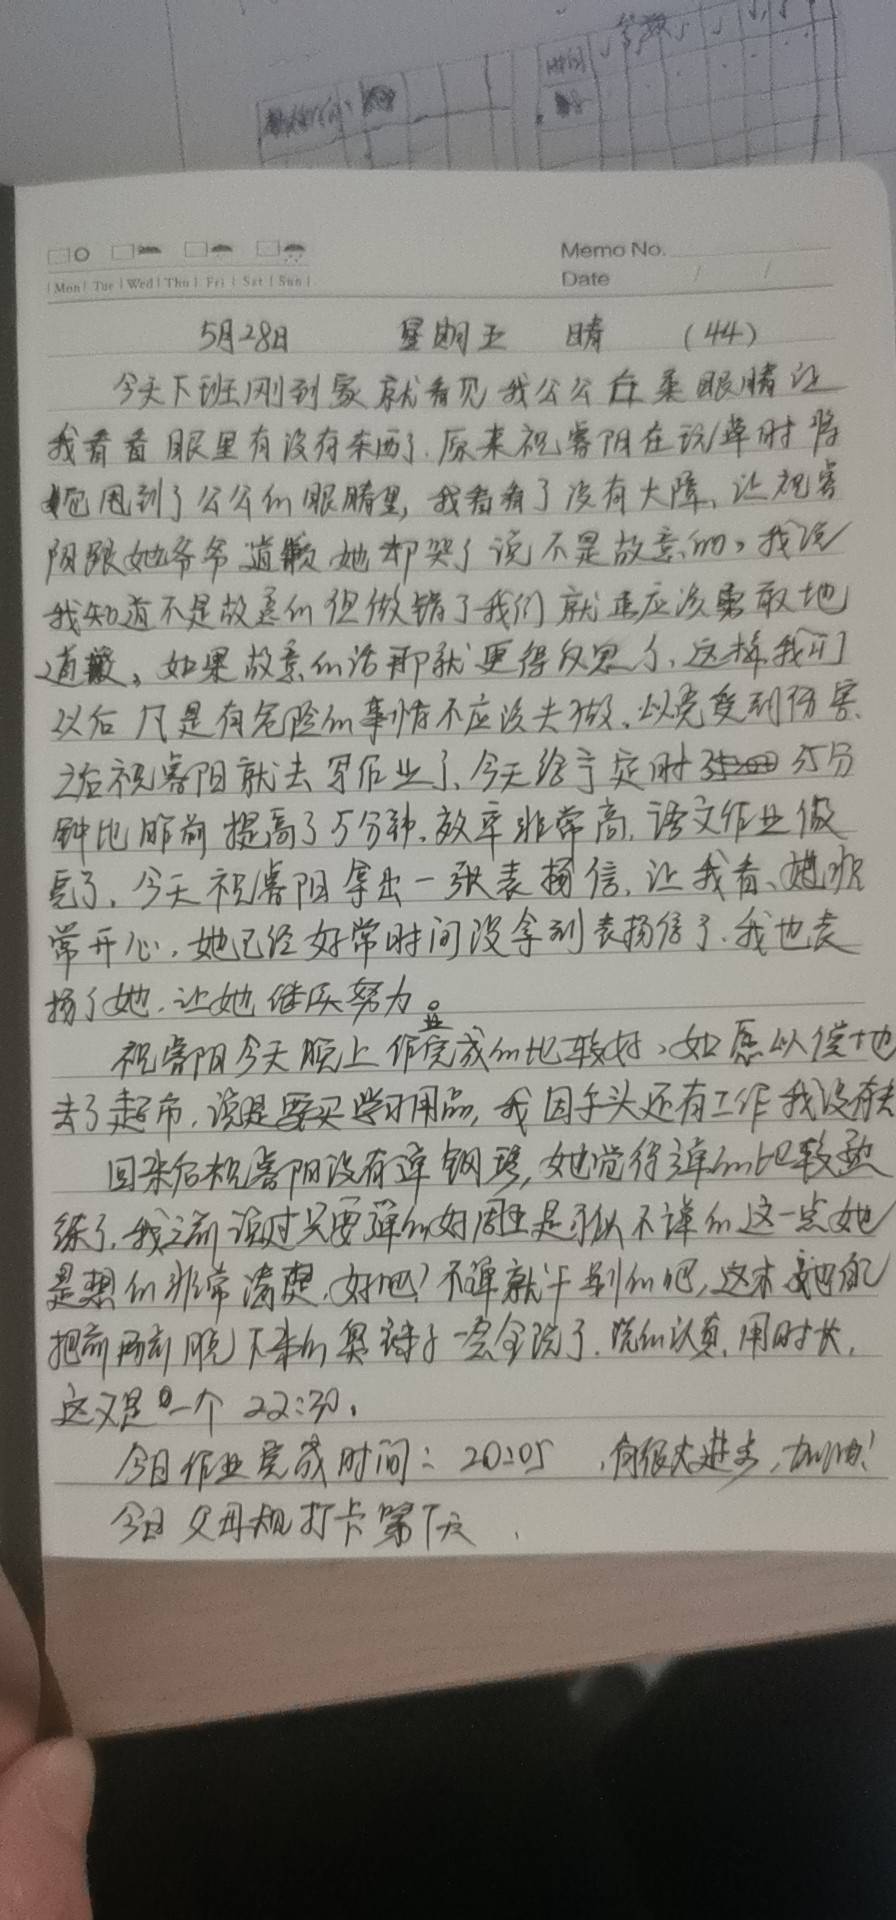 Memo No.
Date / /
Mon Tue Wed Thu Fri Sat Sun
5月28日 星期五 晴 (44)
今天下班刚到家就看见我公公在柔眼睛让
我看看眼里有没有东西了.原来祝睿阳在玩草时将
它甩到了公公的眼睛里,我看看了没有大障、让祝睿
阳跟她爷爷道歉她却哭了说不是故意的,我说
我知道不是故意的但做错了我们就应该勇敢地
道歉,如果故意的话那就更得反思了、这样我们
以后凡是有危险的事情不应该去做、以免受到伤害.
之后祝睿阳就去写作业了、今天给予定时35分
钟比昨前提高了5分钟、效率非常高,语文作业做
完了、今天祝睿阳拿出一张表扬信,让我看、她非
常开心,她已经好常时间没拿到表扬信了.我也表
扬了她.让她继续努力。
祝睿阳今天晚上作业完成的比较好,如愿以偿地
去了超市,说是要买学习用品,我因手头还有工作我没有去
回来后祝睿阳没有弹钢琴,她觉得弹的比较熟
练了,我之前说过只要弹的好周五是可以不弹的这一点她
是想的非常清楚.好吧!不弹就干别的吧,这不她
把前两前脱下来的臭袜子一会全洗了.洗的认真,用时长,
这又是一个22:30.
今日作业完成时间:20:05 ,有很大进步,加油!
今日父母规打卡第